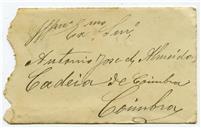 Illmo Exmo Senr
Antonio José d'Almeida
Cadeia de Coimbra
Coimbra